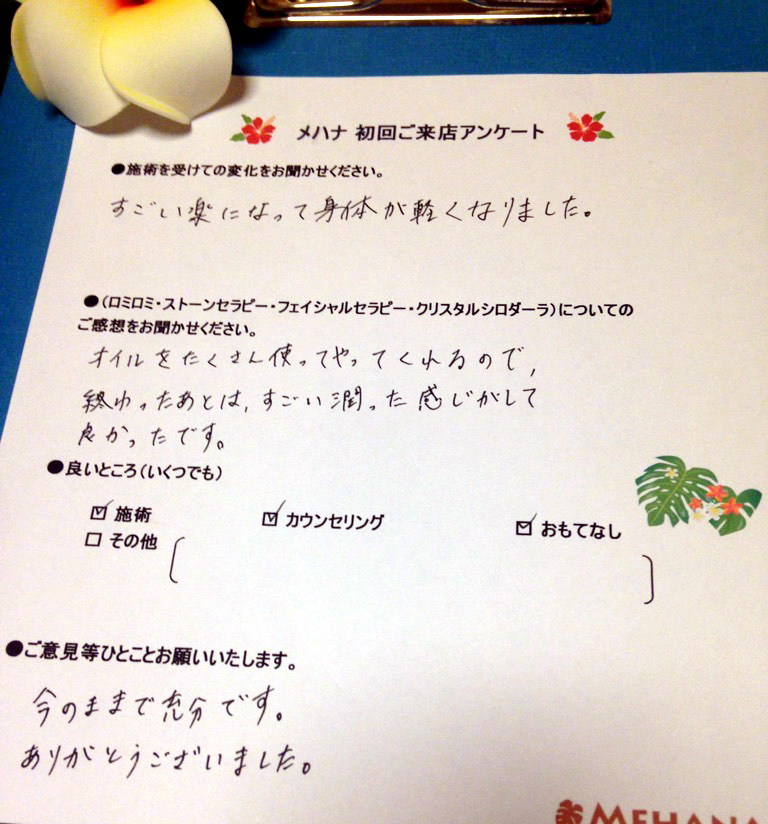 メハナ 初回ご来店アンケート
●施術を受けての変化をお聞かせください。
すごい楽になって身体が軽くなりました。
●(ロミロミ・ストーンセラピー・フェイシャルセラピー・クリスタルシロダーラ)についての
ご感想をお聞かせください。
オイルをたくさん使ってやってくれるので、
終わったあとは、すごい潤った感じがして
良かったです。
●良いところ(いくつでも)
☑ 施術 ☑ カウンセリング ☑ おもてなし
□ その他 〔 〕
●ご意見等ひとことお願いいたします。
今のままで充分です。
ありがとうございました。
MEHANA